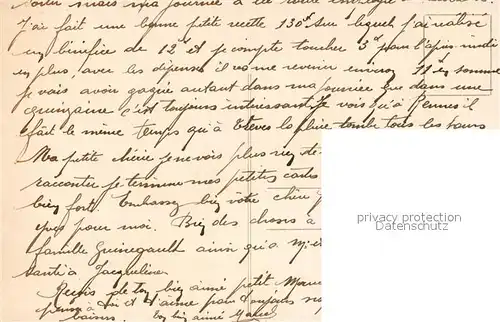 mais ma journée a été
J'ai fait une bonne petite recette 130d sur lequel j'ai réalisé
un bénéfice de 12d et je compte toucher 3d pour l'après midi
en plus, avec les dépenses il va me revenir environ 11d en somme
je vais avoir gagné autant dans ma journée que dans une
quinzaine c'est toujours intéressant. Je vois qu'à Rennes il
fait le même temps qu'à la pluie tombe tous les jours
Ma petite chérie je ne vois plus rien de
raconter je termine mes petites cartes
bien fort. Embrasse bien votre chère
pour moi. Bien des choses à
famille Guinegault ainsi qu'à
santé à Jacqueline
Reçois de ton bien aimé petit
pense à toi et t'aime pour toujours
baisers. Ton bien aimé
privacy protection
Datenschutz